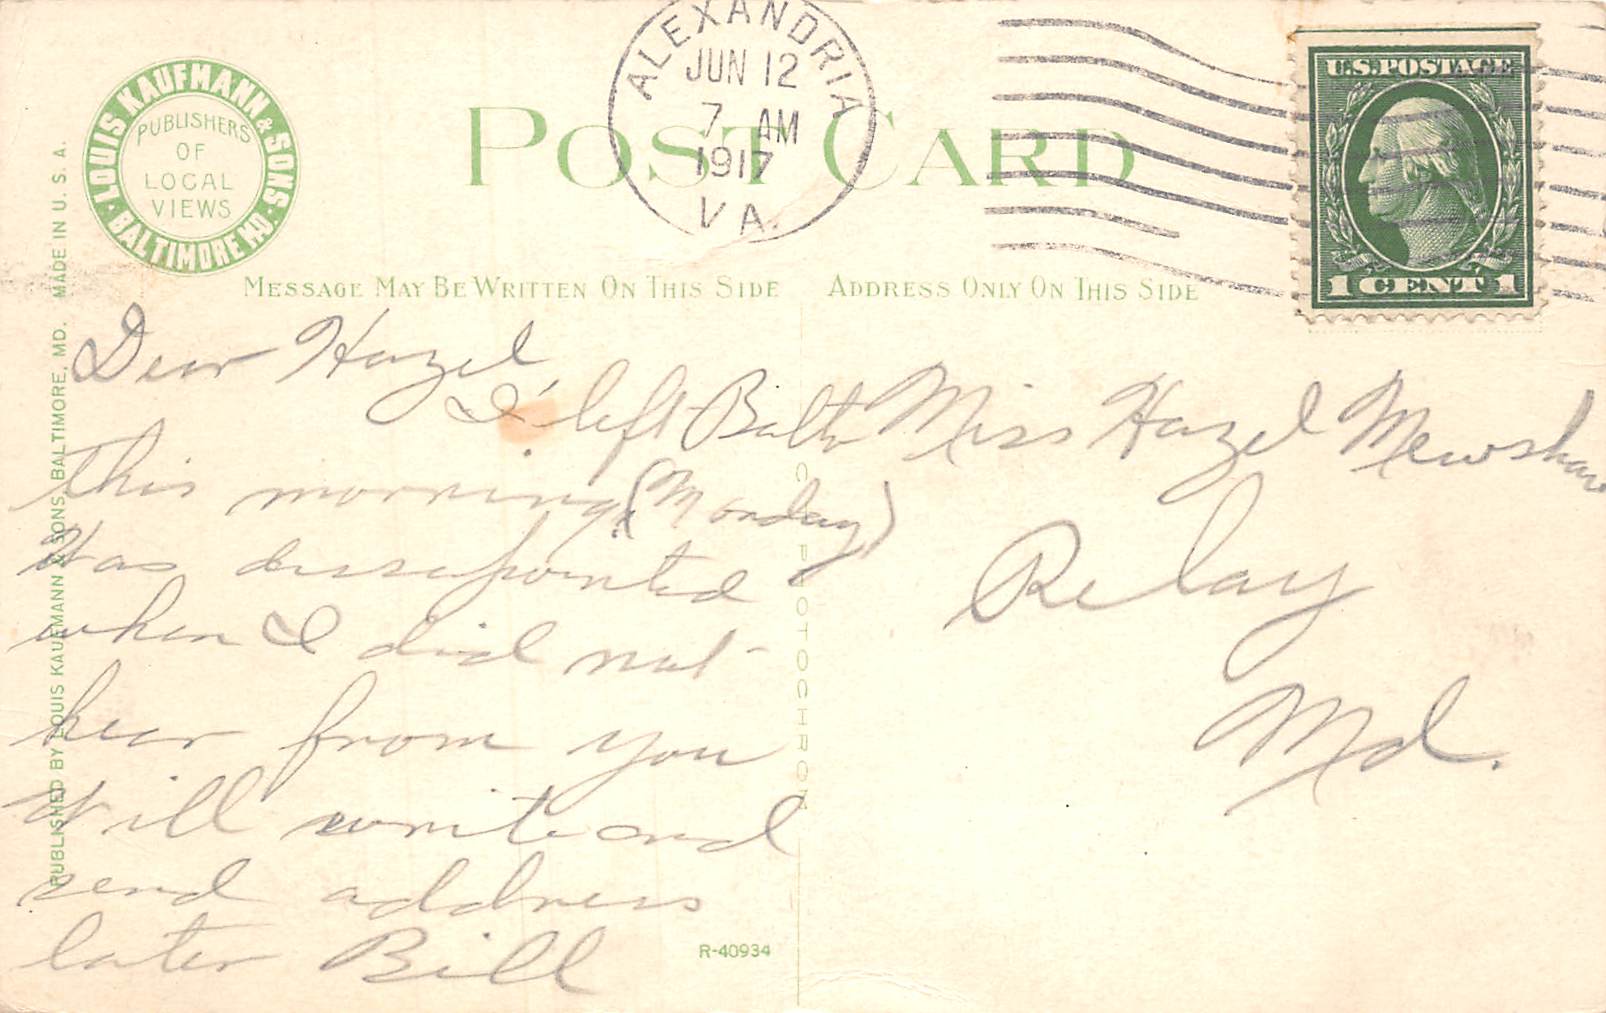 ALEXANDRIA
JUN 12
7 AM
1917
VA.
U.S. POSTAGE
1 CENT 1
LOUIS KAUFMANN & SONS · BALTIMORE MD. ·
PUBLISHERS
OF
LOCAL
VIEWS
POST CARD
MESSAGE MAY BE WRITTEN ON THIS SIDE
ADDRESS ONLY ON THIS SIDE
PUBLISHED BY LOUIS KAUFMANN & SONS, BALTIMORE, MD. MADE IN U. S. A.
Dear Hazel
I left Balto
this morning (Monday)
Was dissepointed
when I did not
hear from you
Will write and
send address
later Bill
C. P. PHOTOCHROM
R-40934
Miss Hazel Mewshaw
Relay
Md.